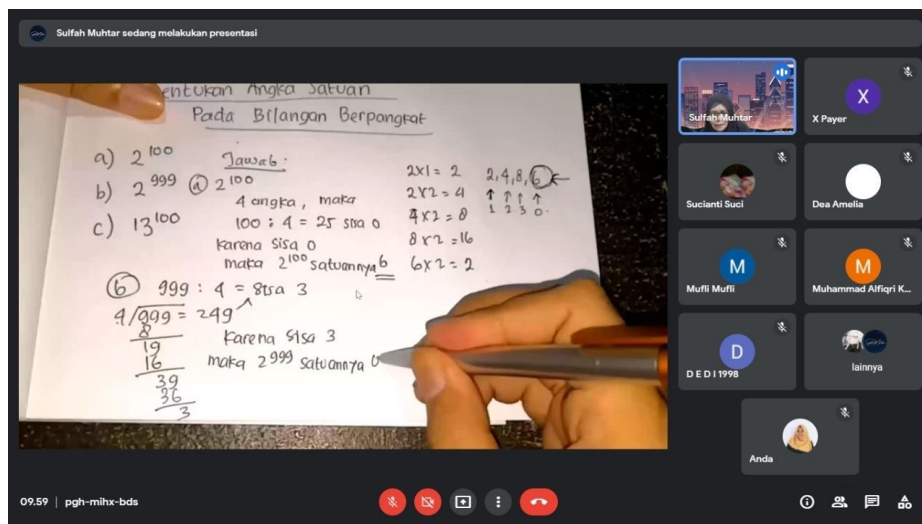 Sulfah Muhtar sedang melakukan presentasi
entukan Angka Satuan
Pada Bilangan Berpangkat
a) 2^100
b) 2^999
c) 13^100
Jawab :
ⓐ 2^100
4 angka, maka
100 : 4 = 25 sisa 0
karena sisa 0
maka 2^100 satuannya 6
2x1 = 2
2x2 = 4
4x2 = 8
8x2 = 16
6x2 = 2
2, 4, 8, 6
↑ ↑ ↑ ↑
1 2 3 0
ⓑ 999 : 4 = sisa 3
4/999 = 249
8
19
16
39
36
3
karena sisa 3
maka 2^999 satuannya
Sulfah Muhtar
X
X Payer
Sucianti Suci
Dea Amelia
M
Mufli Mufli
M
Muhammad Alfiqri K...
D
D E D I 1998
lainnya
Anda
09.59 | pgh-mihx-bds